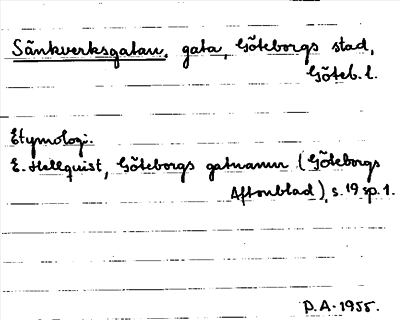 Sänkverksgatan, gata, Göteborgs stad,
Göteb. l.
Etymologi.
E. Hellquist, Göteborgs gatnamn (Göteborgs
Aftonblad), s. 19 sp. 1.
P.A. 1955.